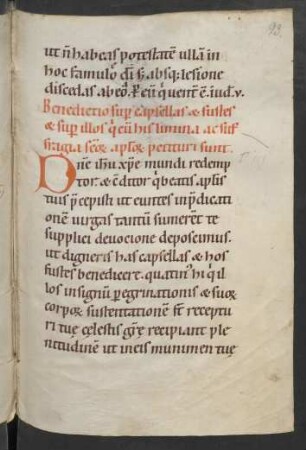 93
ut n̄ habeas potestatē ullā in
hoc famulo d̄i s; absq; lesione
discedas ab eo. P eū q̇ uent̄ ē iud. v.
Benedictio sup capsellas & fustes
& sup illos q̇ cū his limina ac suf
fragia scōꝝ aplōꝝ petituri sunt
Dn̄e ih̄u xp̄e mundi redemp
tor. & c̄ditor q̇ beatis aplis
tuis p̄cepisti ut euntes inp̄dicati
onem uirgas tantū sumerēt te
supplici deuocione deposcimus.
ut digneris has capsellas & hos
fustes benedicere. quatin; hi q̇ il
los insignū peregrinationis & suoꝝ
corpoꝝ sustentationē st̄ receptu
ri tuę cęlestis grę recipiant ple
nitudinē ut in eis munimen tuę